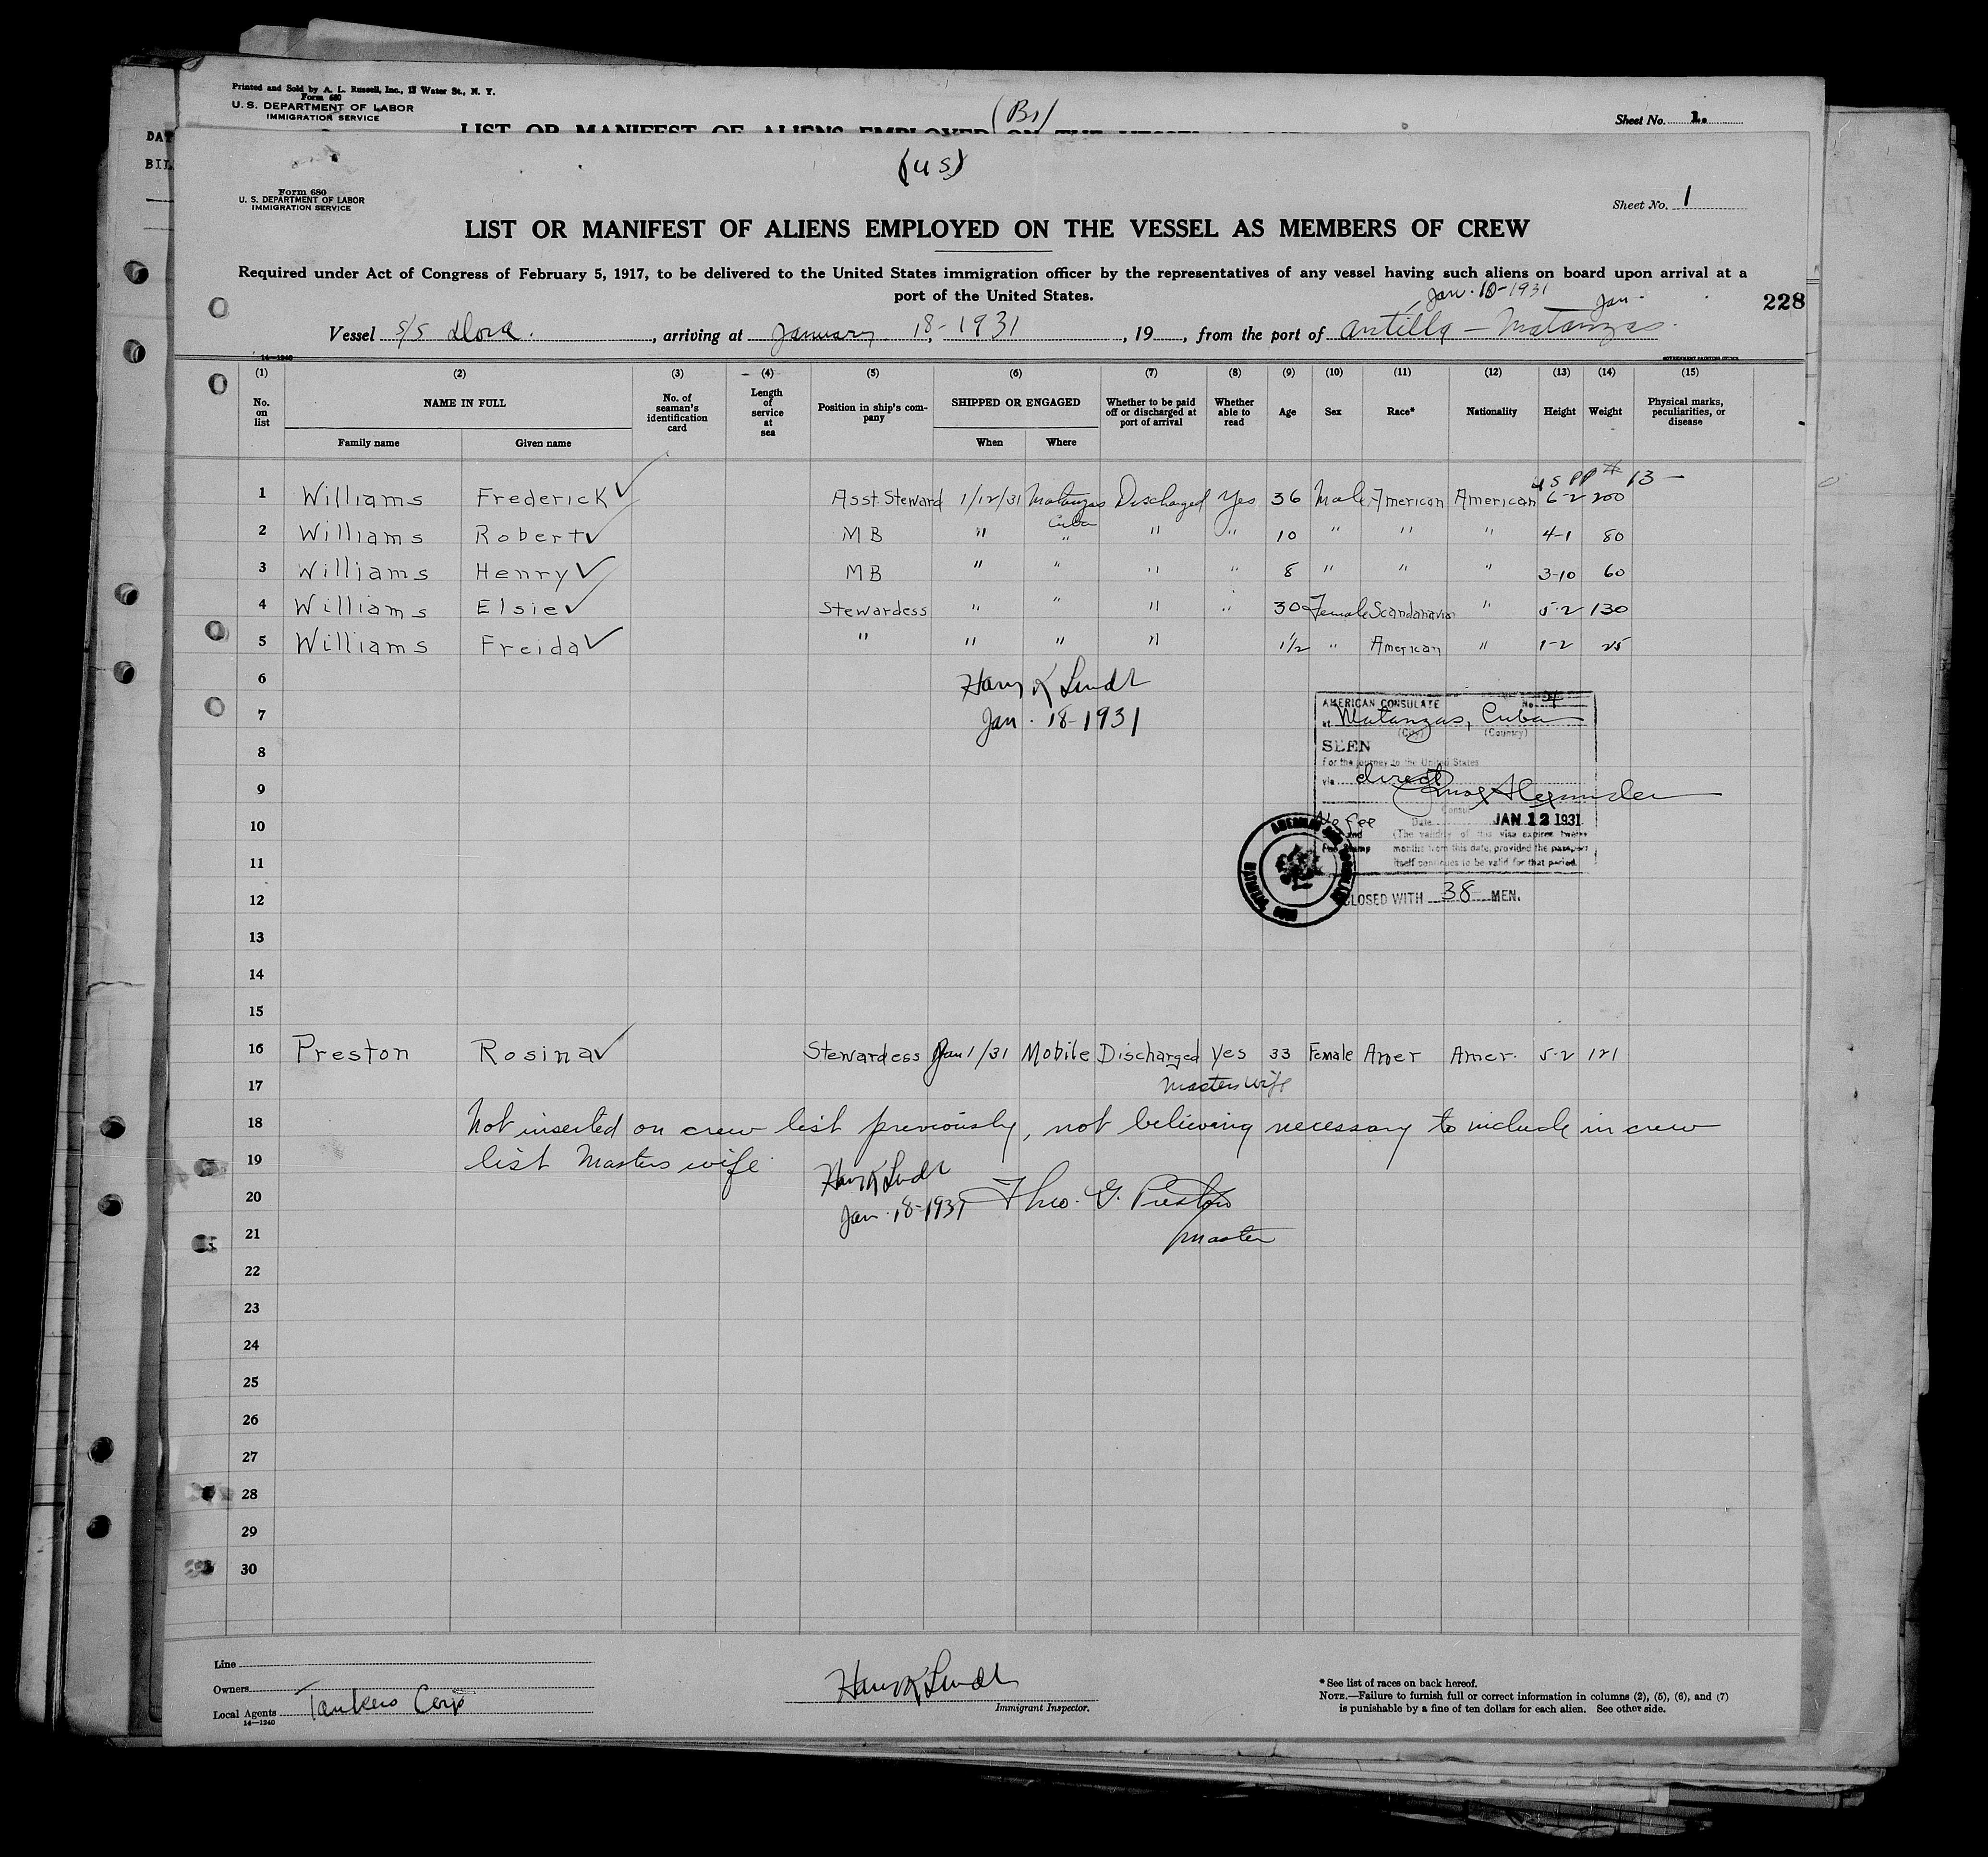 Printed and Sold by A. L. Russell, Inc., 13 Water St., N. Y.
Form 680
U. S. DEPARTMENT OF LABOR
IMMIGRATION SERVICE
(Br)
Sheet No. 1.
LIST OR MANIFEST OF ALIENS EMPLOYED ON THE VESSEL AS
DAT
BIL
(US)
Form 680
U. S. DEPARTMENT OF LABOR
IMMIGRATION SERVICE
Sheet No. 1
LIST OR MANIFEST OF ALIENS EMPLOYED ON THE VESSEL AS MEMBERS OF CREW
Required under Act of Congress of February 5, 1917, to be delivered to the United States immigration officer by the representatives of any vessel having such aliens on board upon arrival at a
port of the United States.
Jan. 10-1931 Jan.
228
Vessel S/S Dora., arriving at January 18-1931, 19, from the port of Antilla - Matanzas.
14—1240 GOVERNMENT PRINTING OFFICE
(1) (2) (3) (4) (5) (6) (7) (8) (9) (10) (11) (12) (13) (14) (15)
No. on list NAME IN FULL No. of seaman's identification card Length of service at sea Position in ship's company SHIPPED OR ENGAGED Whether to be paid off or discharged at port of arrival Whether able to read Age Sex Race* Nationality Height Weight Physical marks, peculiarities, or disease
Family name Given name When Where
US PP # 13 —
1 Williams Frederick Asst. Steward 1/12/31 Matanzas Discharged Yes 36 Male American American 6-2 200
Cuba
2 Williams Robert MB " " " " 10 " " " 4-1 80
3 Williams Henry MB " " " " 8 " " " 3-10 60
4 Williams Elsie Stewardess " " " " 30 Female Scandanavian " 5-2 130
5 Williams Freida " " " " 1½ " American " 1-2 25
6
7
Harry K Lindt
Jan. 18-1931
AMERICAN CONSULATE No. 4
at Matanzas, Cuba
(City) (Country)
SEEN
For the journey to the United States
via direct
Alexander
Consul
No fee
Date JAN 12 1931
(The validity of this visa expires twelve
months from this date, provided the passport
itself continues to be valid for that period.
CLOSED WITH 38 MEN.
8
9
10
11
12
13
14
15
16 Preston Rosina Stewardess Jan 1/31 Mobile Discharged Yes 33 Female Amer Amer. 5-2 121
17 Masters Wife
18 Not inserted on crew list previously, not believing necessary to include in crew
19 list Masters wife.
Harry K Lindt
20 Jan. 18-1931 Theo. G. Preston
21 Master
22
23
24
25
26
27
28
29
30
Line
Owners
Local Agents Tankers Corp
14—1240
Harry K Lindt
Immigrant Inspector.
* See list of races on back hereof.
NOTE.—Failure to furnish full or correct information in columns (2), (5), (6), and (7)
is punishable by a fine of ten dollars for each alien. See other side.